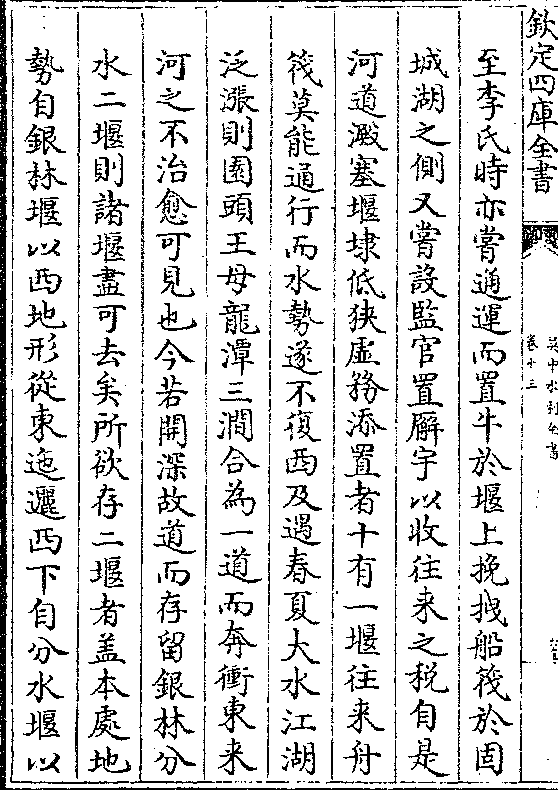 欽定四庫全書
吳中水利全書
卷十三
至李氏時亦嘗通運而置牛於堰上挽拽船筏於固
城湖之側又嘗設監官置廨宇以收往来之税自是
河道澱塞堰埭低狭虛務添置者十有一堰往来舟
筏莫能通行而水勢遂不復西及遇春夏大水江湖
泛漲則園頭王母龍潭三澗合為一道而奔衝東来
河之不治愈可見也今若開深故道而存留銀林分
水二堰則諸堰盡可去矣所欲存二堰者盖本處地
勢自銀林堰以西地形從東迤邐西下自分水堰以